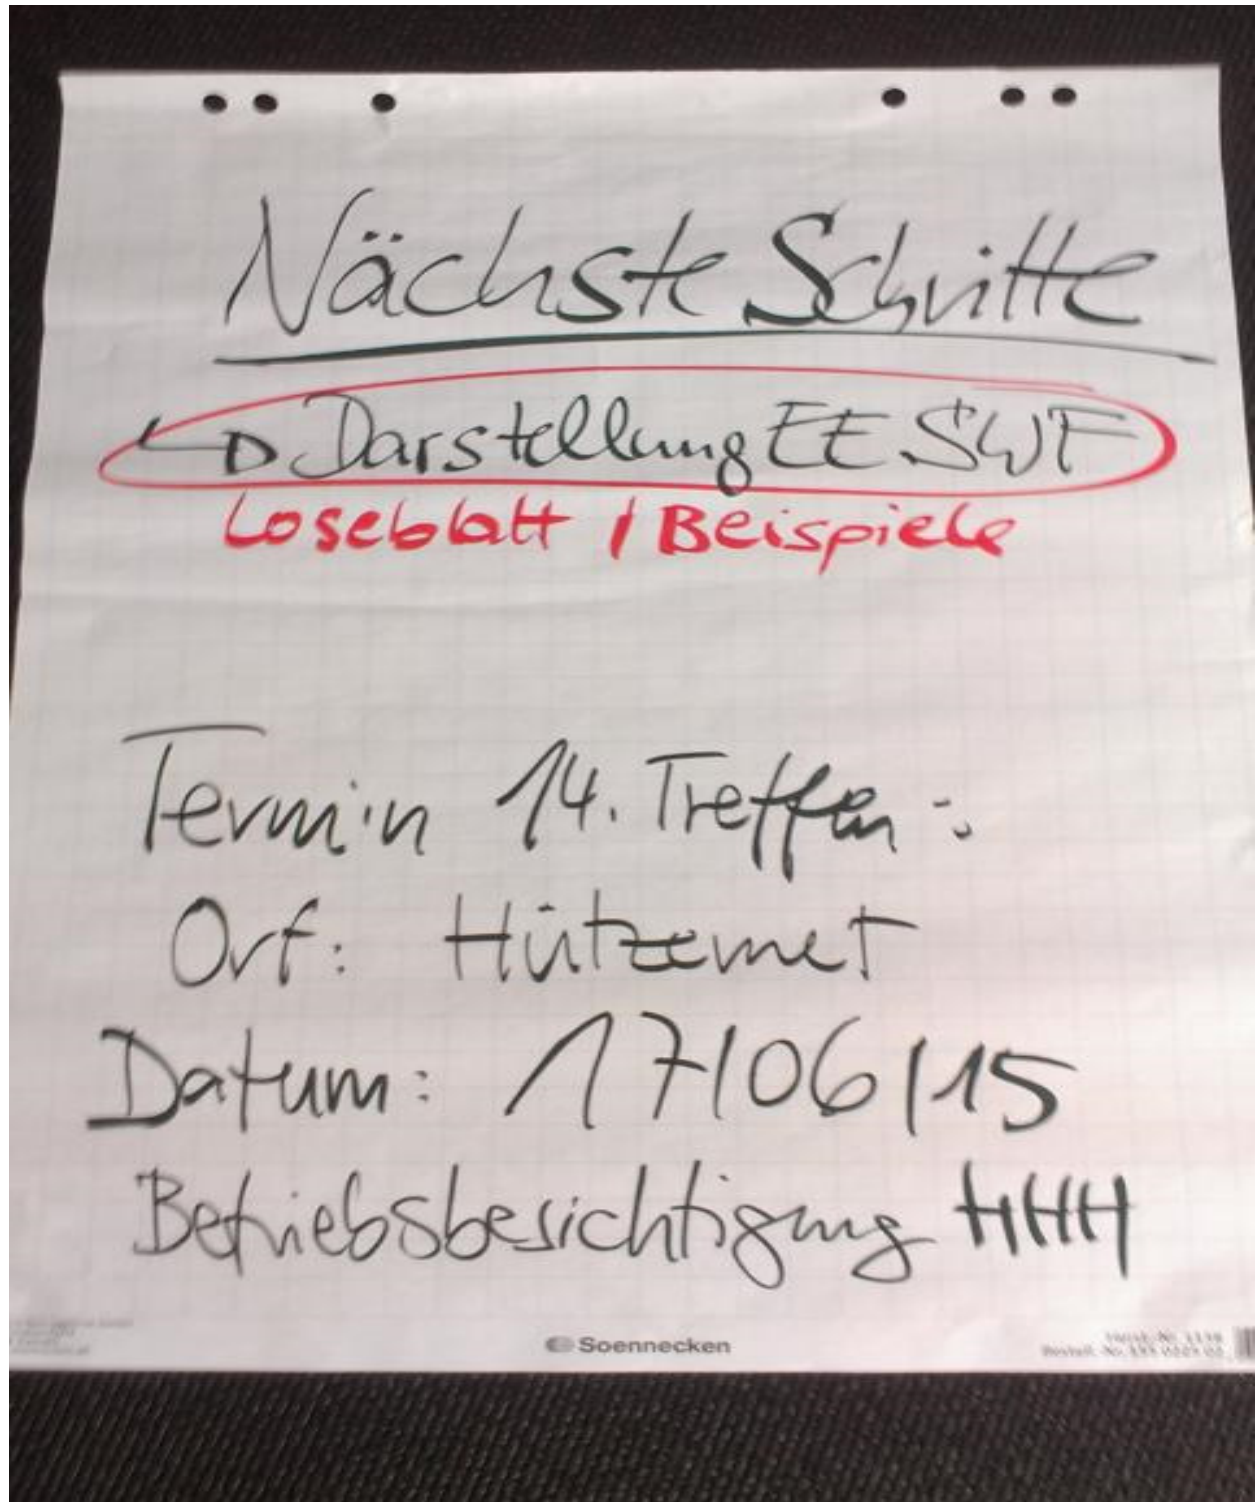 Nächste Schritte
Darstellung EE SWF
Loseblatt / Beispiele
Termin 14. Treffen:
Ort: Hützemert
Datum: 17/06/15
Betriebsbesichtigung HHH
Soennecken